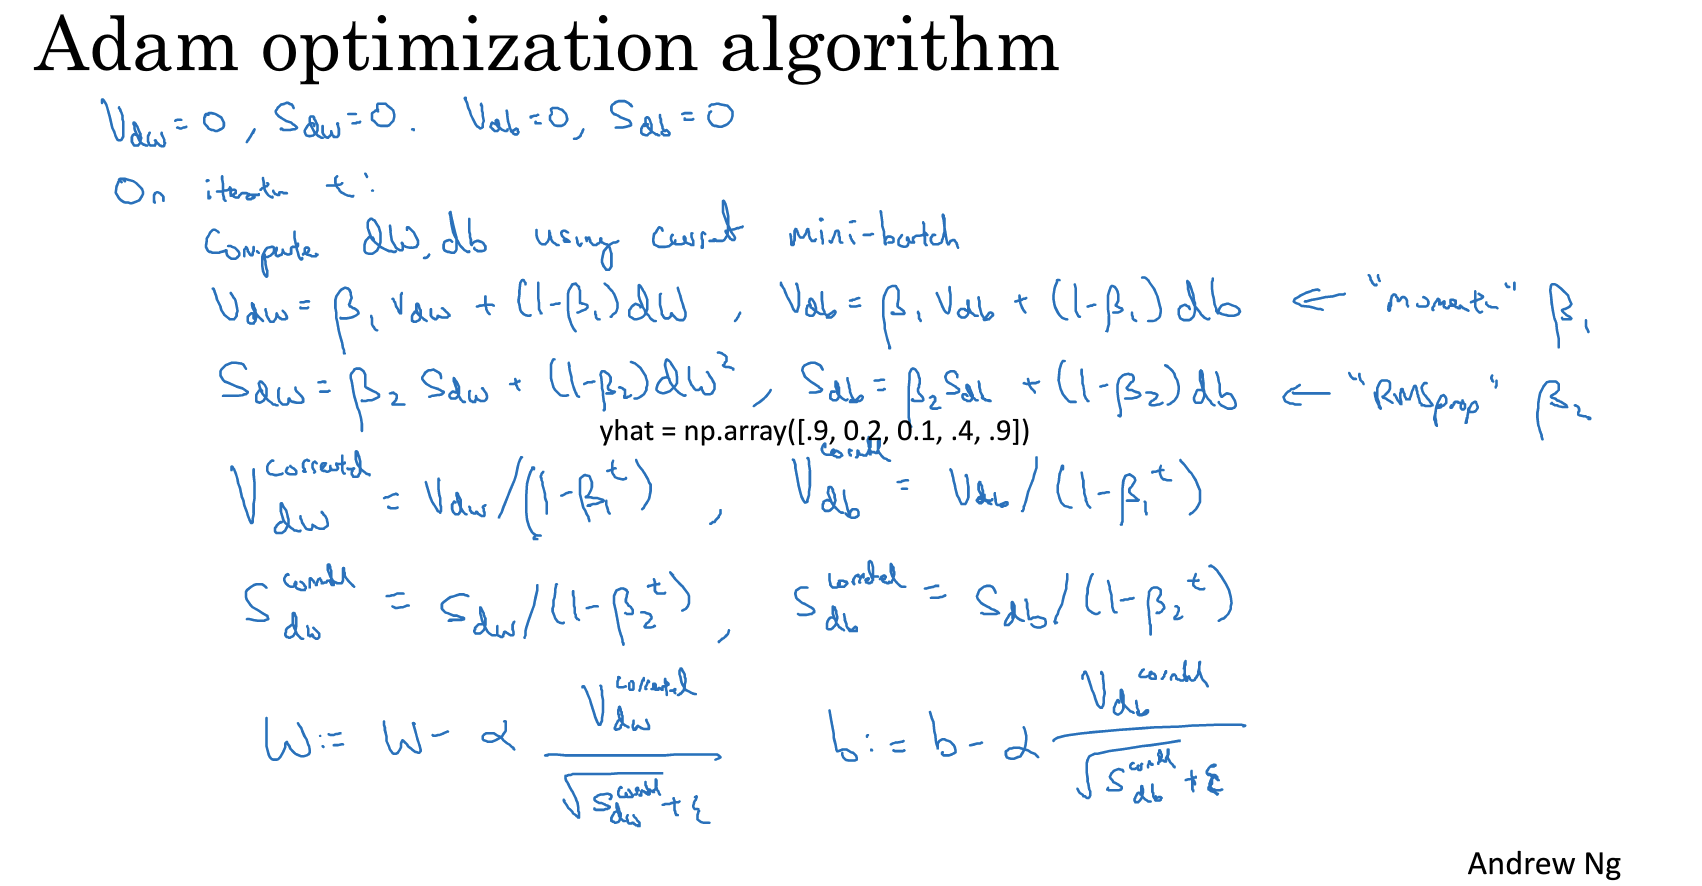 Adam optimization algorithm
V_dw = 0, S_dw = 0. V_db = 0, S_db = 0
On iteratn t:
Compute dW, db using current mini-batch
V_dw = β₁ V_dw + (1-β₁) dW, V_db = β₁ V_db + (1-β₁) db ← "moment" β₁
S_dw = β₂ S_dw + (1-β₂) dW², S_db = β₂ S_db + (1-β₂) db ← "RMSprop" β₂
yhat = np.array([.9, 0.2, 0.1, .4, .9])
V_dw^corrected = V_dw/(1-β₁^t), V_db^corrected = V_db/(1-β₁^t)
S_dw^corrected = S_dw/(1-β₂^t), S_db^corrected = S_db/(1-β₂^t)
W := W - α V_dw^corrected / √S_dw^corrected + ε b := b - α V_db^corrected / √S_db^corrected + ε
Andrew Ng